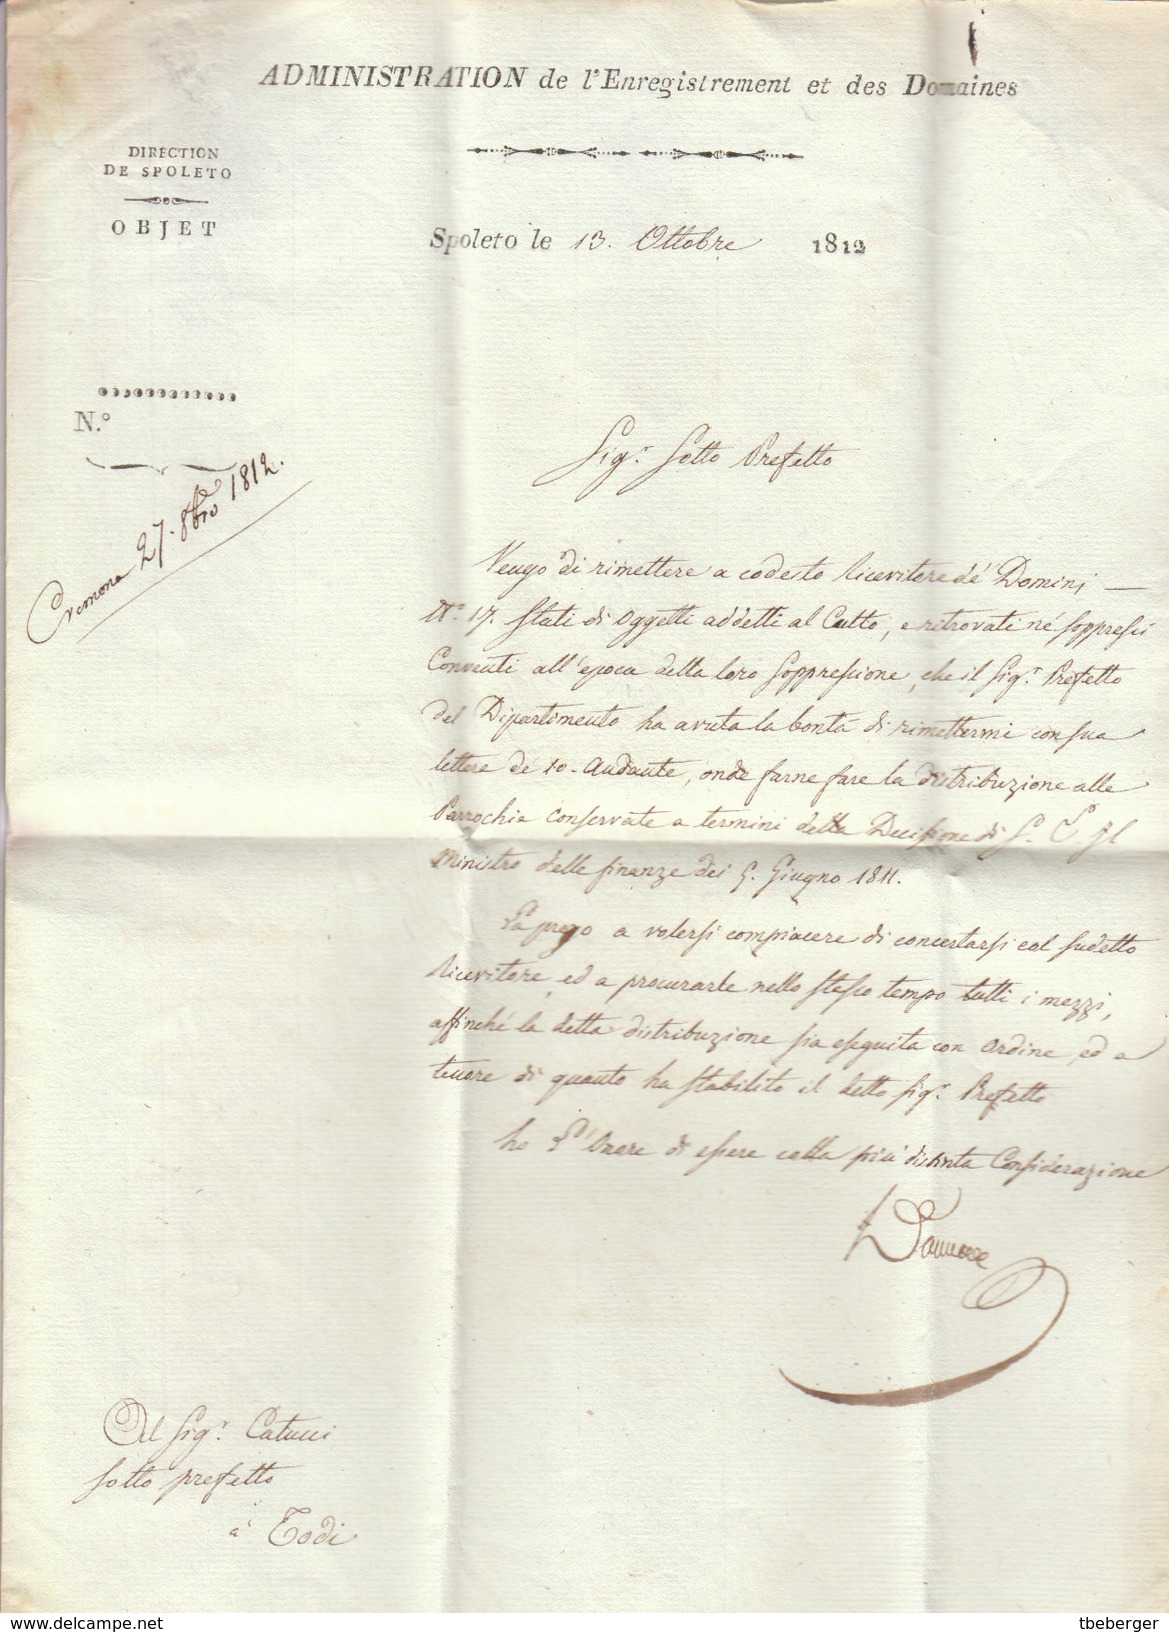 ADMINISTRATION de l'Enregistrement et des Domaines
DIRECTION
DE SPOLETO
OBJET
Spoleto le 13. Ottobre 1812
N.º
27. 8bre 1812.
Sig.r Sotto Prefetto
Vengo di rimettere a codesto Ricevitore de' Domini —
N.º 17. Stati di Oggetti addetti al Culto, e ritrovati né soppressi
Conventi all'epoca della loro soppressione, che il Sig.r Prefetto
del Dipartimento ha avuta la bontà di rimettermi con sua
lettera de 10. Andante, onde farne fare la distribuzione alle
Parrochie conservate a termini della Decisione di S. E. Il
Ministro delle finanze dei 5. Giugno 1811.
La prego a volersi compiacere di concertarsi col sudetto
Ricevitore, ed a procurarle nello stesso tempo tutti i mezzi,
affinché la detta distribuzione sia eseguita con ordine, ed a
tenore di quanto ha stabilito il detto Sig.r Prefetto
ho L'Onore di essere colla più distinta Considerazione
Al Sig.r Catucci
Sotto prefetto
a' Todi
www.delcampe.net
tbeberger